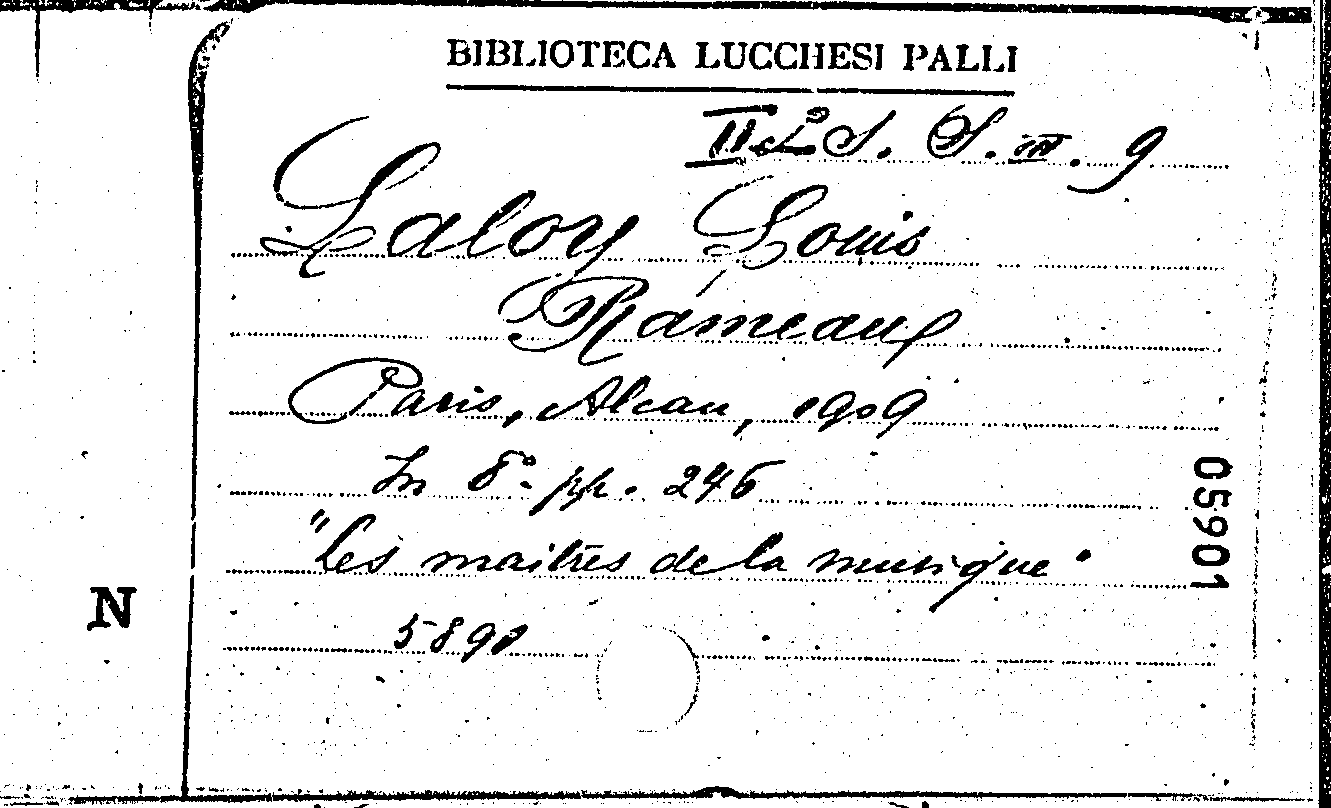 BIBLIOTECA LUCCHESI PALLI
S. S. III. 9
Laloy Louis
Rameau
Paris, Alcan, 1909
In 8°. pp. 246
"Les maîtres de la musique"
05901
N